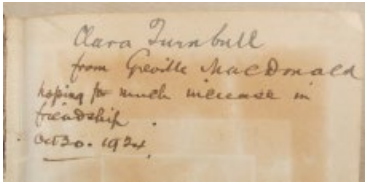 Clara Turnbull
from Greville MacDonald
hoping for much increase in
friendship.
Oct 20. 1924.